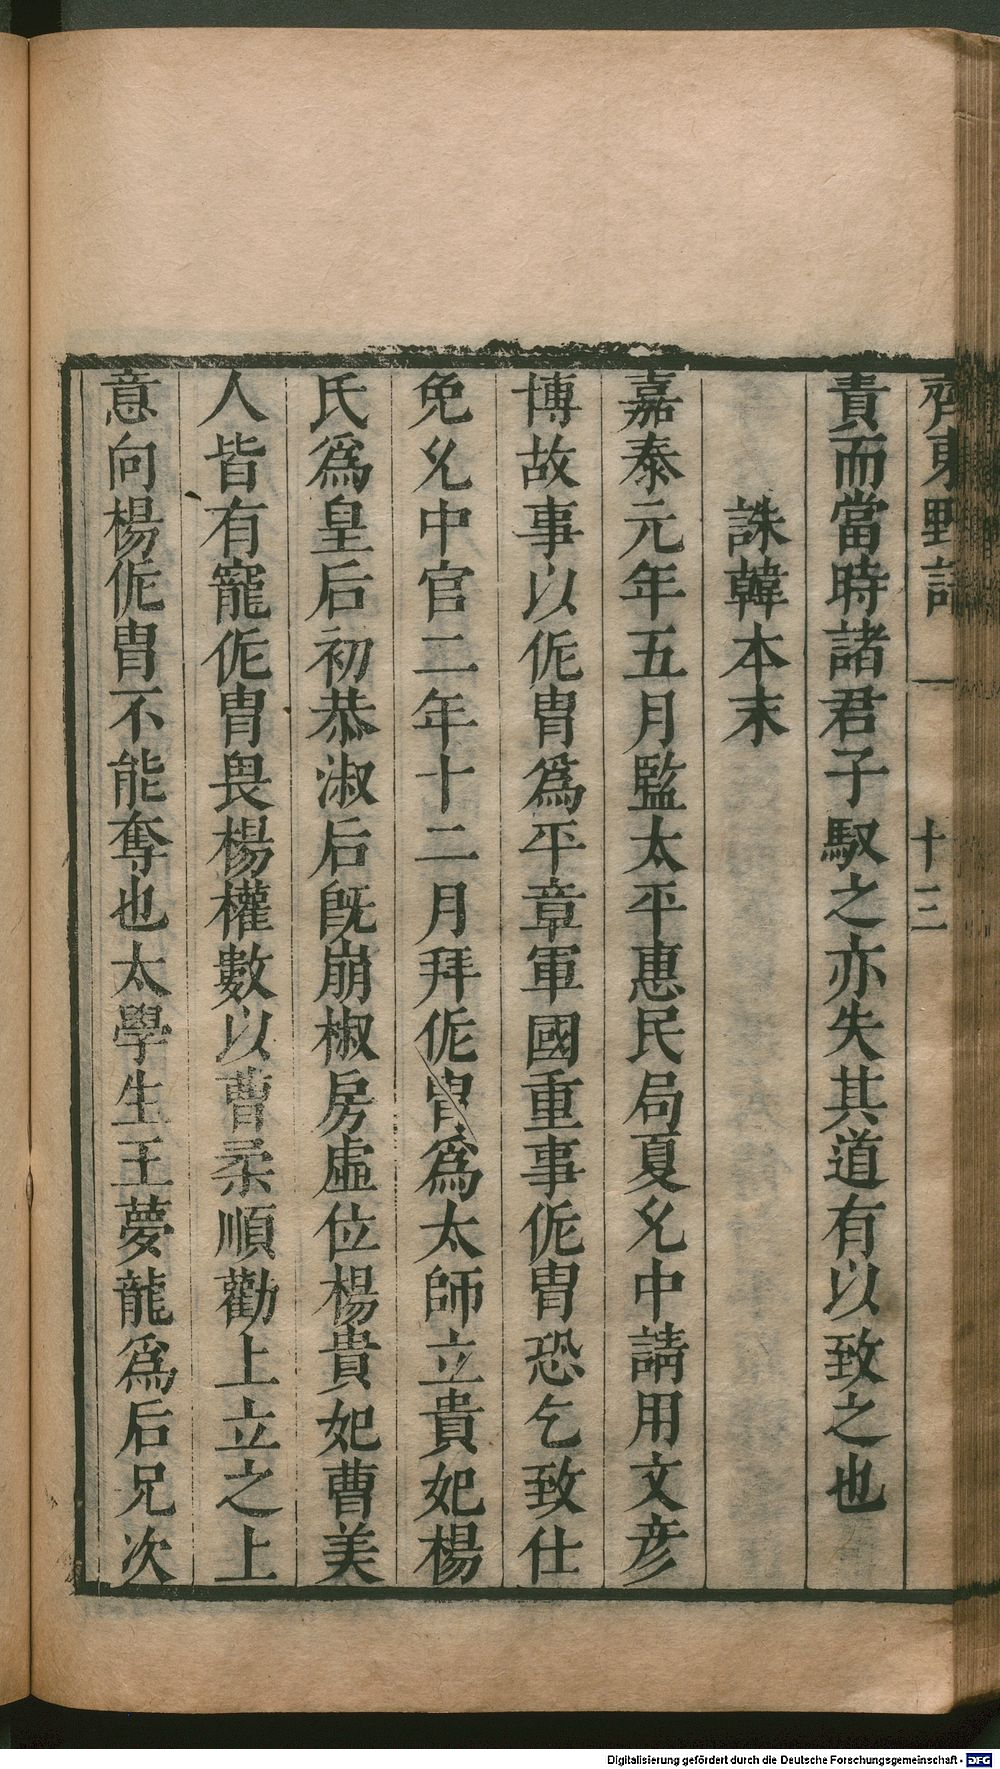 齊東野語 一 十三
責而當時諸君子馭之亦失其道有以致之也
誅韓本末
嘉泰元年五月監太平惠民局夏允中請用文彥
博故事以侂冑爲平章軍國重事侂冑恐乞致仕
免允中官二年十二月拜侂冑爲太師立貴妃楊
氏爲皇后初恭淑后旣崩椒房虛位楊貴妃曹美
人皆有寵侂冑畏楊權數以曹柔順勸上立之上
意向楊侂冑不能奪也太學生王夢龍爲后兄次
Digitalisierung gefördert durch die Deutsche Forschungsgemeinschaft - DFG